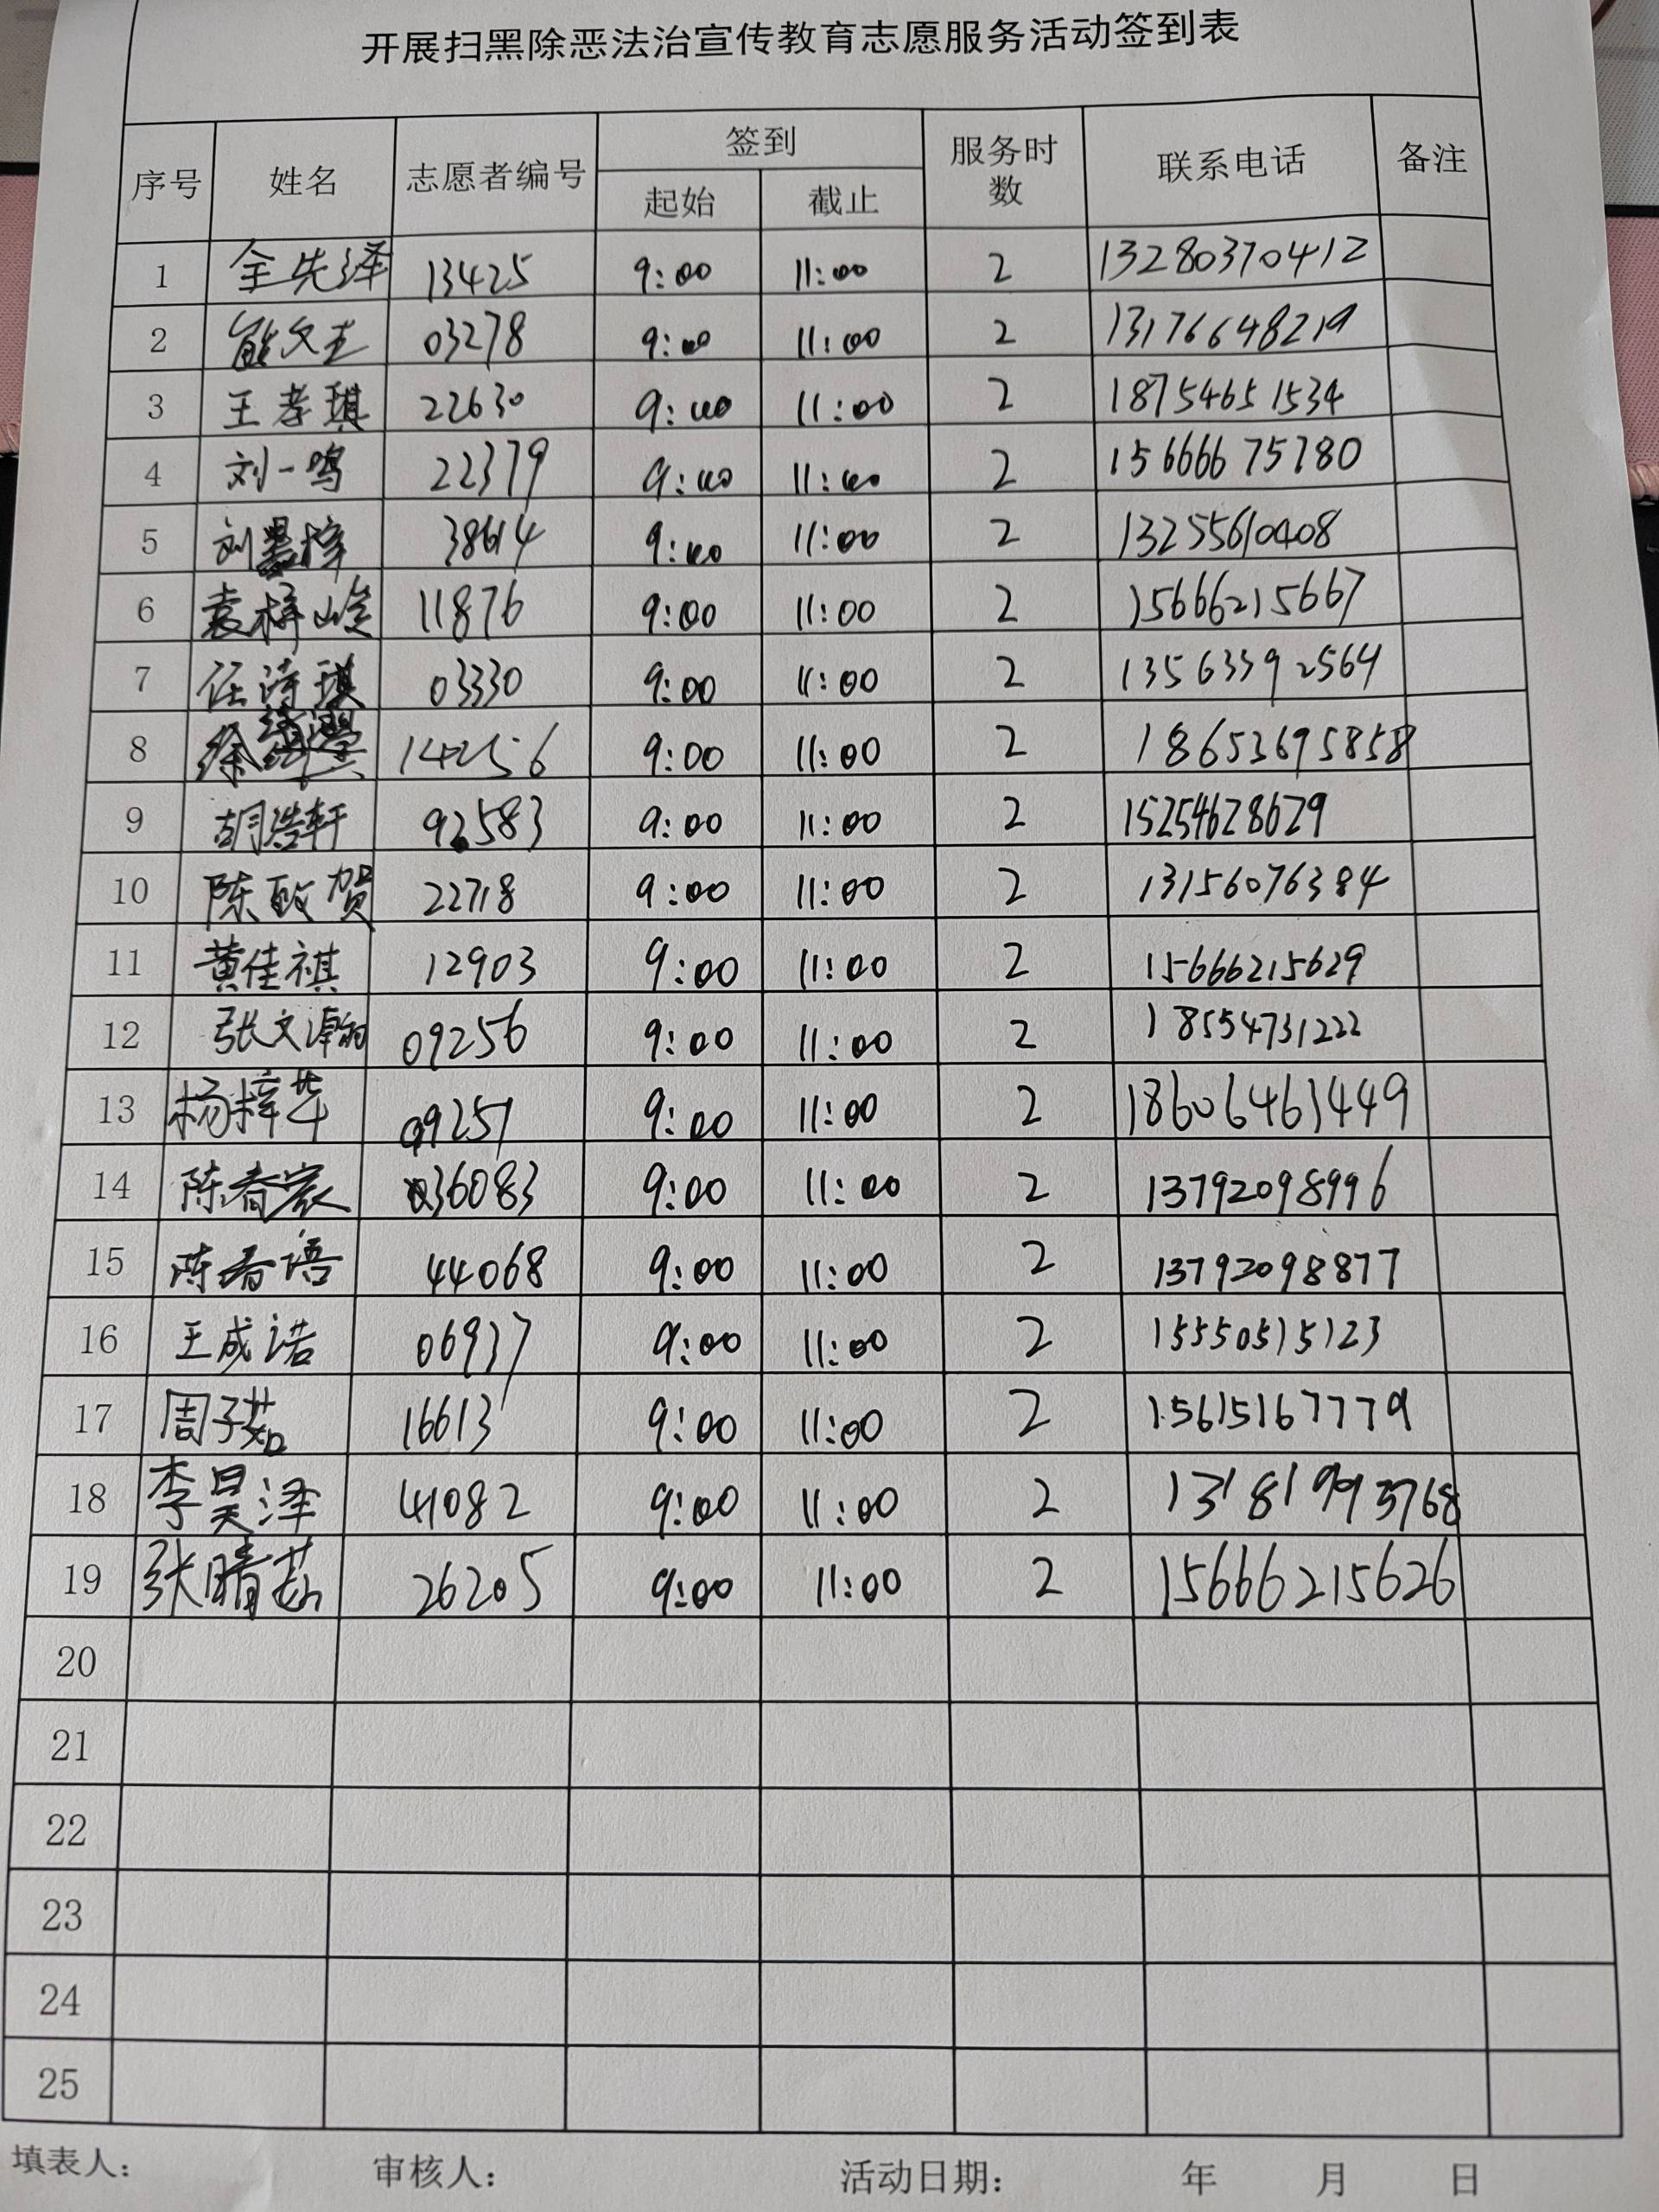 开展扫黑除恶法治宣传教育志愿服务活动签到表
序号 姓名 志愿者编号 签到 服务时数 联系电话 备注
起始 截止
1 全先泽 13425 9:00 11:00 2 13280370412
2 13278 9:00 11:00 2 13176648219
3 王孝琪 22630 9:00 11:00 2 18754651534
4 刘一鸣 22379 9:00 11:00 2 15666675780
5 刘墨梓 38614 9:00 11:00 2 13255610408
6 袁梓峻 11876 9:00 11:00 2 15666215667
7 任诗琪 03330 9:00 11:00 2 13563392564
8 徐 14256 9:00 11:00 2 18653695858
9 胡浩轩 92583 9:00 11:00 2 15254628629
10 陈贺 22718 9:00 11:00 2 13156076384
11 黄佳祺 12903 9:00 11:00 2 15666215629
12 张文 09256 9:00 11:00 2 18554731222
13 杨梓华 09257 9:00 11:00 2 18606461449
14 陈春 036083 9:00 11:00 2 13792098996
15 陈春语 44068 9:00 11:00 2 13792098877
16 王成诺 06937 9:00 11:00 2 15550515123
17 周子茹 16613 9:00 11:00 2 15615167779
18 李昊泽 41082 9:00 11:00 2 13181993768
19 张晴茹 26205 9:00 11:00 2 15666215626
20
21
22
23
24
25
填表人： 审核人： 活动日期： 年 月 日